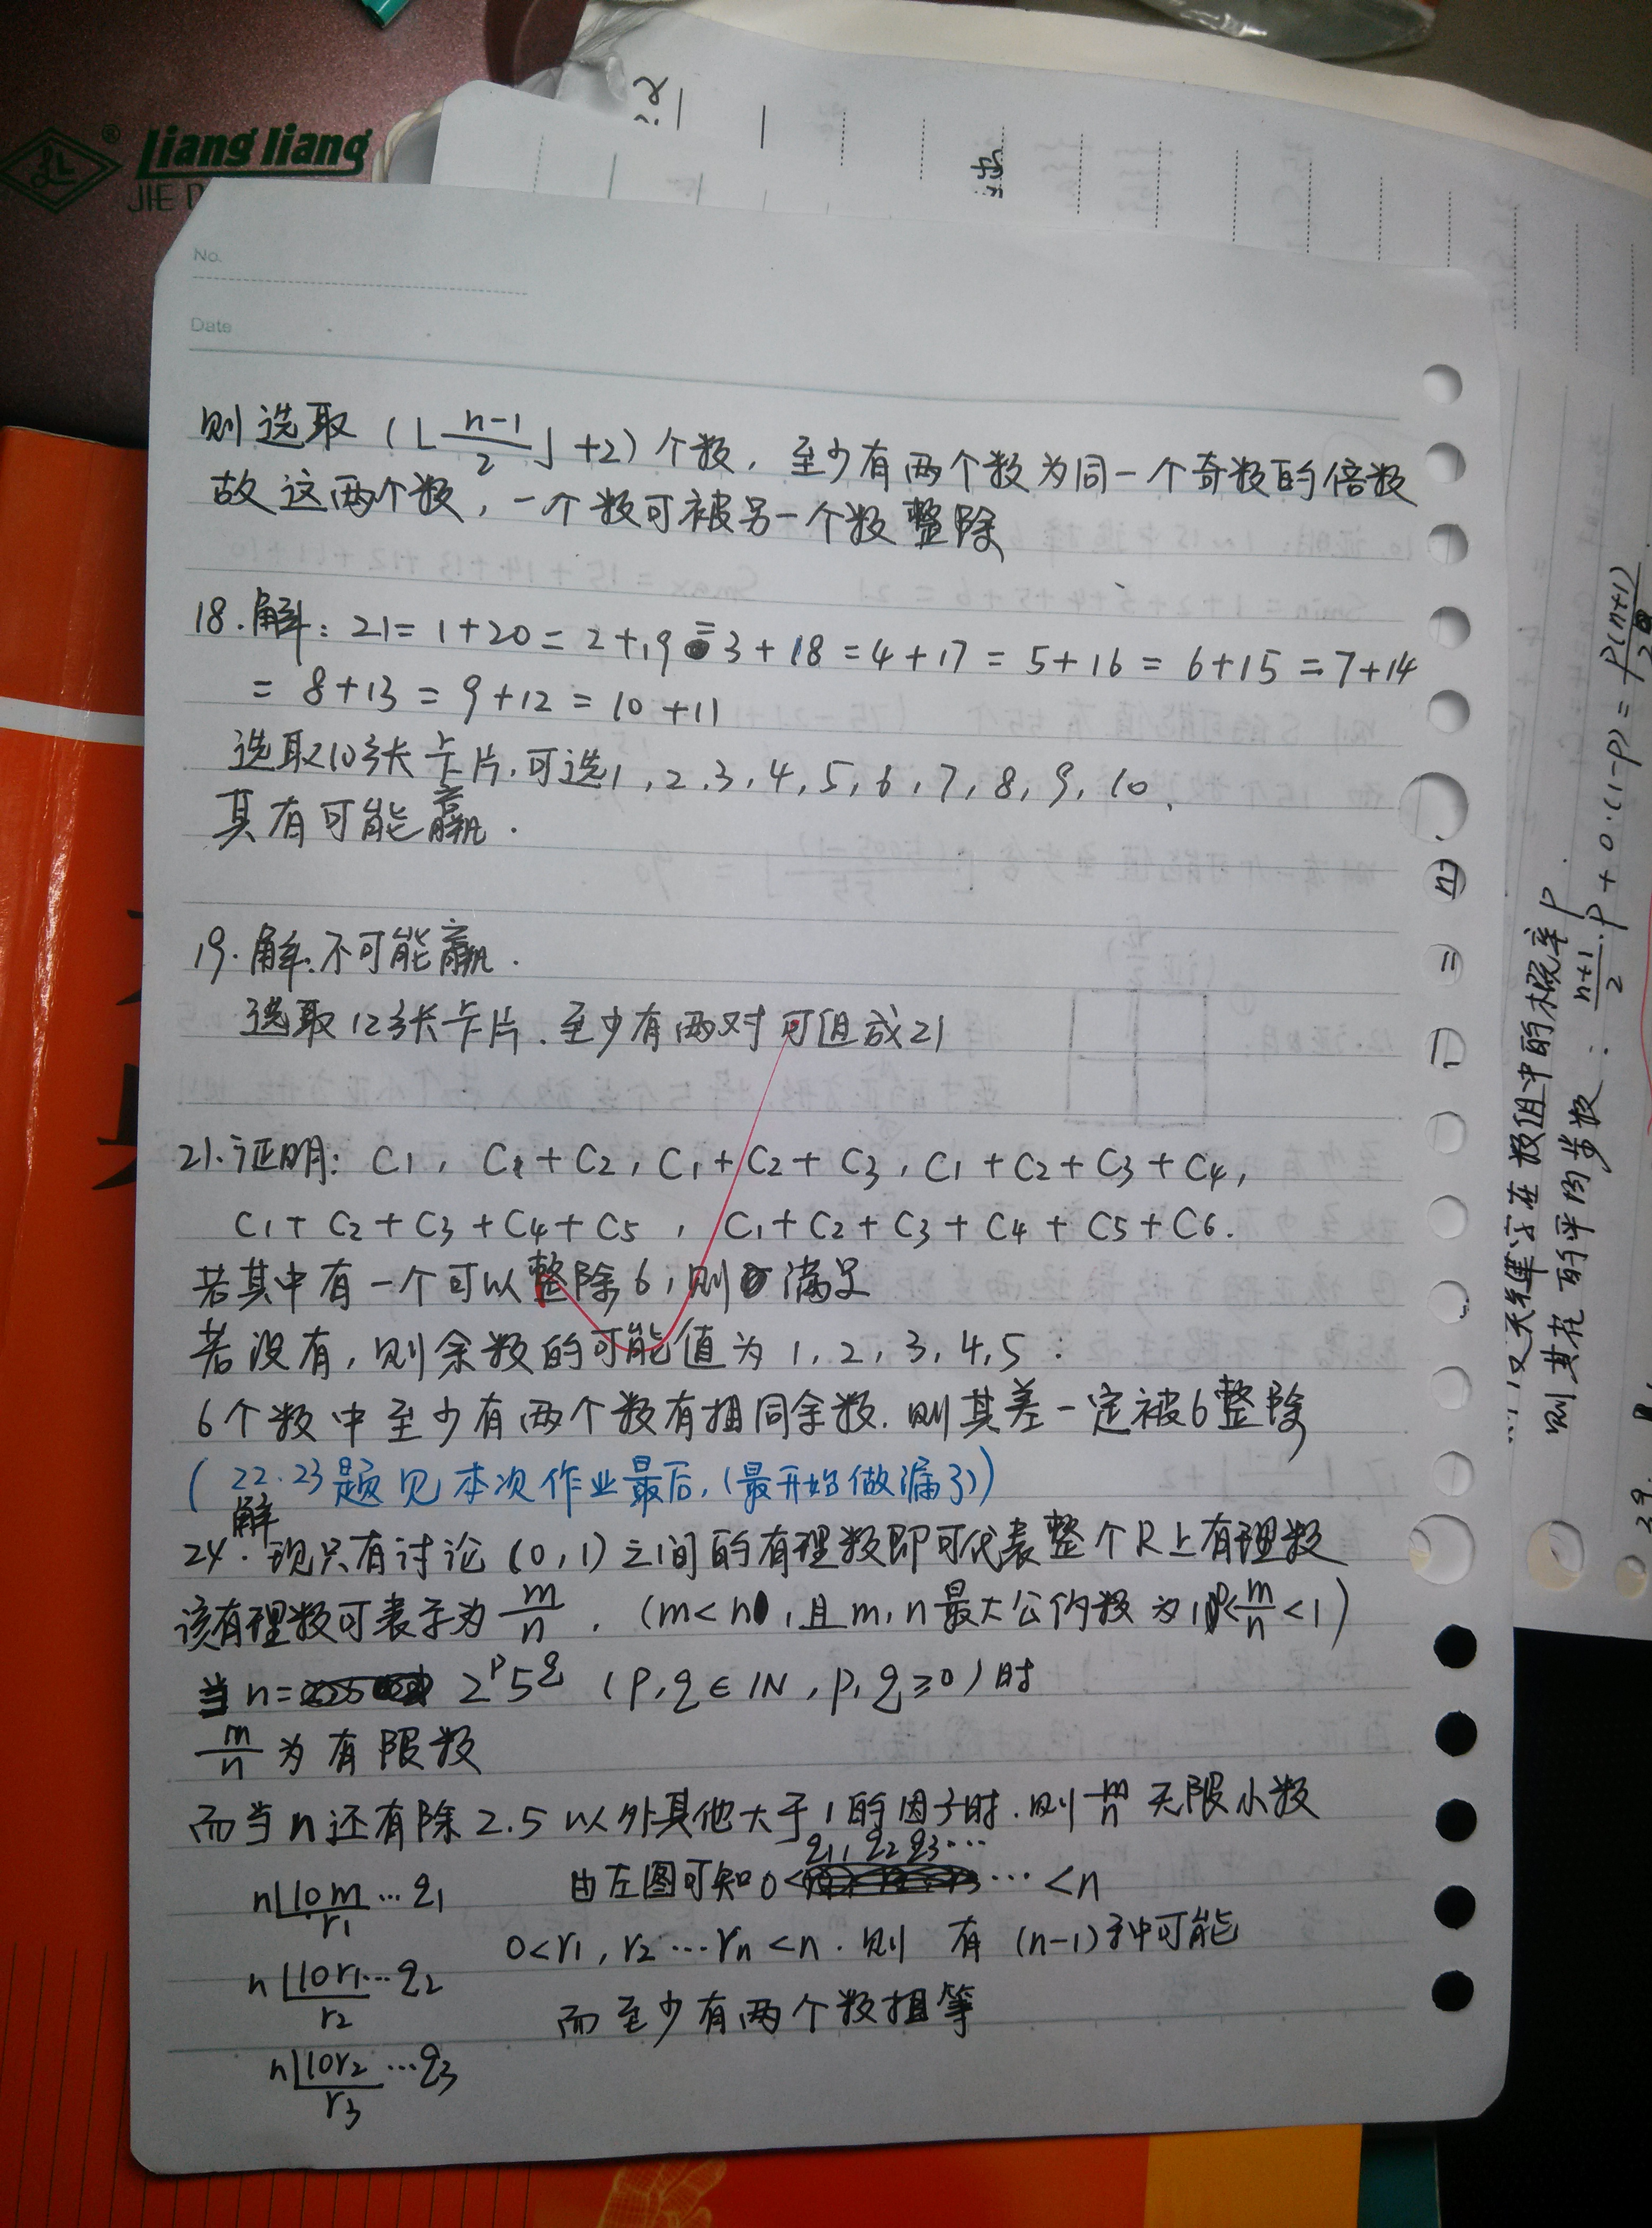 Liang liang
®
JIE D
No.
Date
则选取 (⌊(n-1)/2⌋+2) 个数, 至少有两个数为同一个奇数的倍数
故这两个数, 一个数可被另一个数整除
18.解: 21=1+20=2+19=3+18=4+17=5+16=6+15=7+14
=8+13=9+12=10+11
选取10张卡片,可选1,2,3,4,5,6,7,8,9,10、
其有可能赢.
19.解:不可能赢.
选取12张卡片.至少有两对可组成21
21.证明: C1, C1+C2, C1+C2+C3, C1+C2+C3+C4,
C1+C2+C3+C4+C5, C1+C2+C3+C4+C5+C6.
若其中有一个可以整除6,则满足
若没有,则余数的可能值为1,2,3,4,5:
6个数中至少有两个数有相同余数.则其差一定被6整除
(22.23题见本次作业最后,(最开始做漏了))
解
24.现只有讨论(0,1)之间的有理数即可代表整个R上有理数
该有理数可表示为 m/n, (m<n,且m,n最大公约数为1,0<m/n<1)
当n= 2^p5^q (p,q∈IN,p,q≥0)时
m/n为有限数
而当n还有除2.5以外其他大于1的因子时.则m/n无限小数
n|10m…q1
r1
n|10r1…q2
r2
n|10r2…q3
r3
由左图可知0<q1,q2 q3……<n
0<r1,r2…rn<n.则 有 (n-1)种可能
而至少有两个数相等
又关键字在数组中的概率P
则其花的平均步数: (n+1)/2·P+0·(1-P)=P(n+1)/2